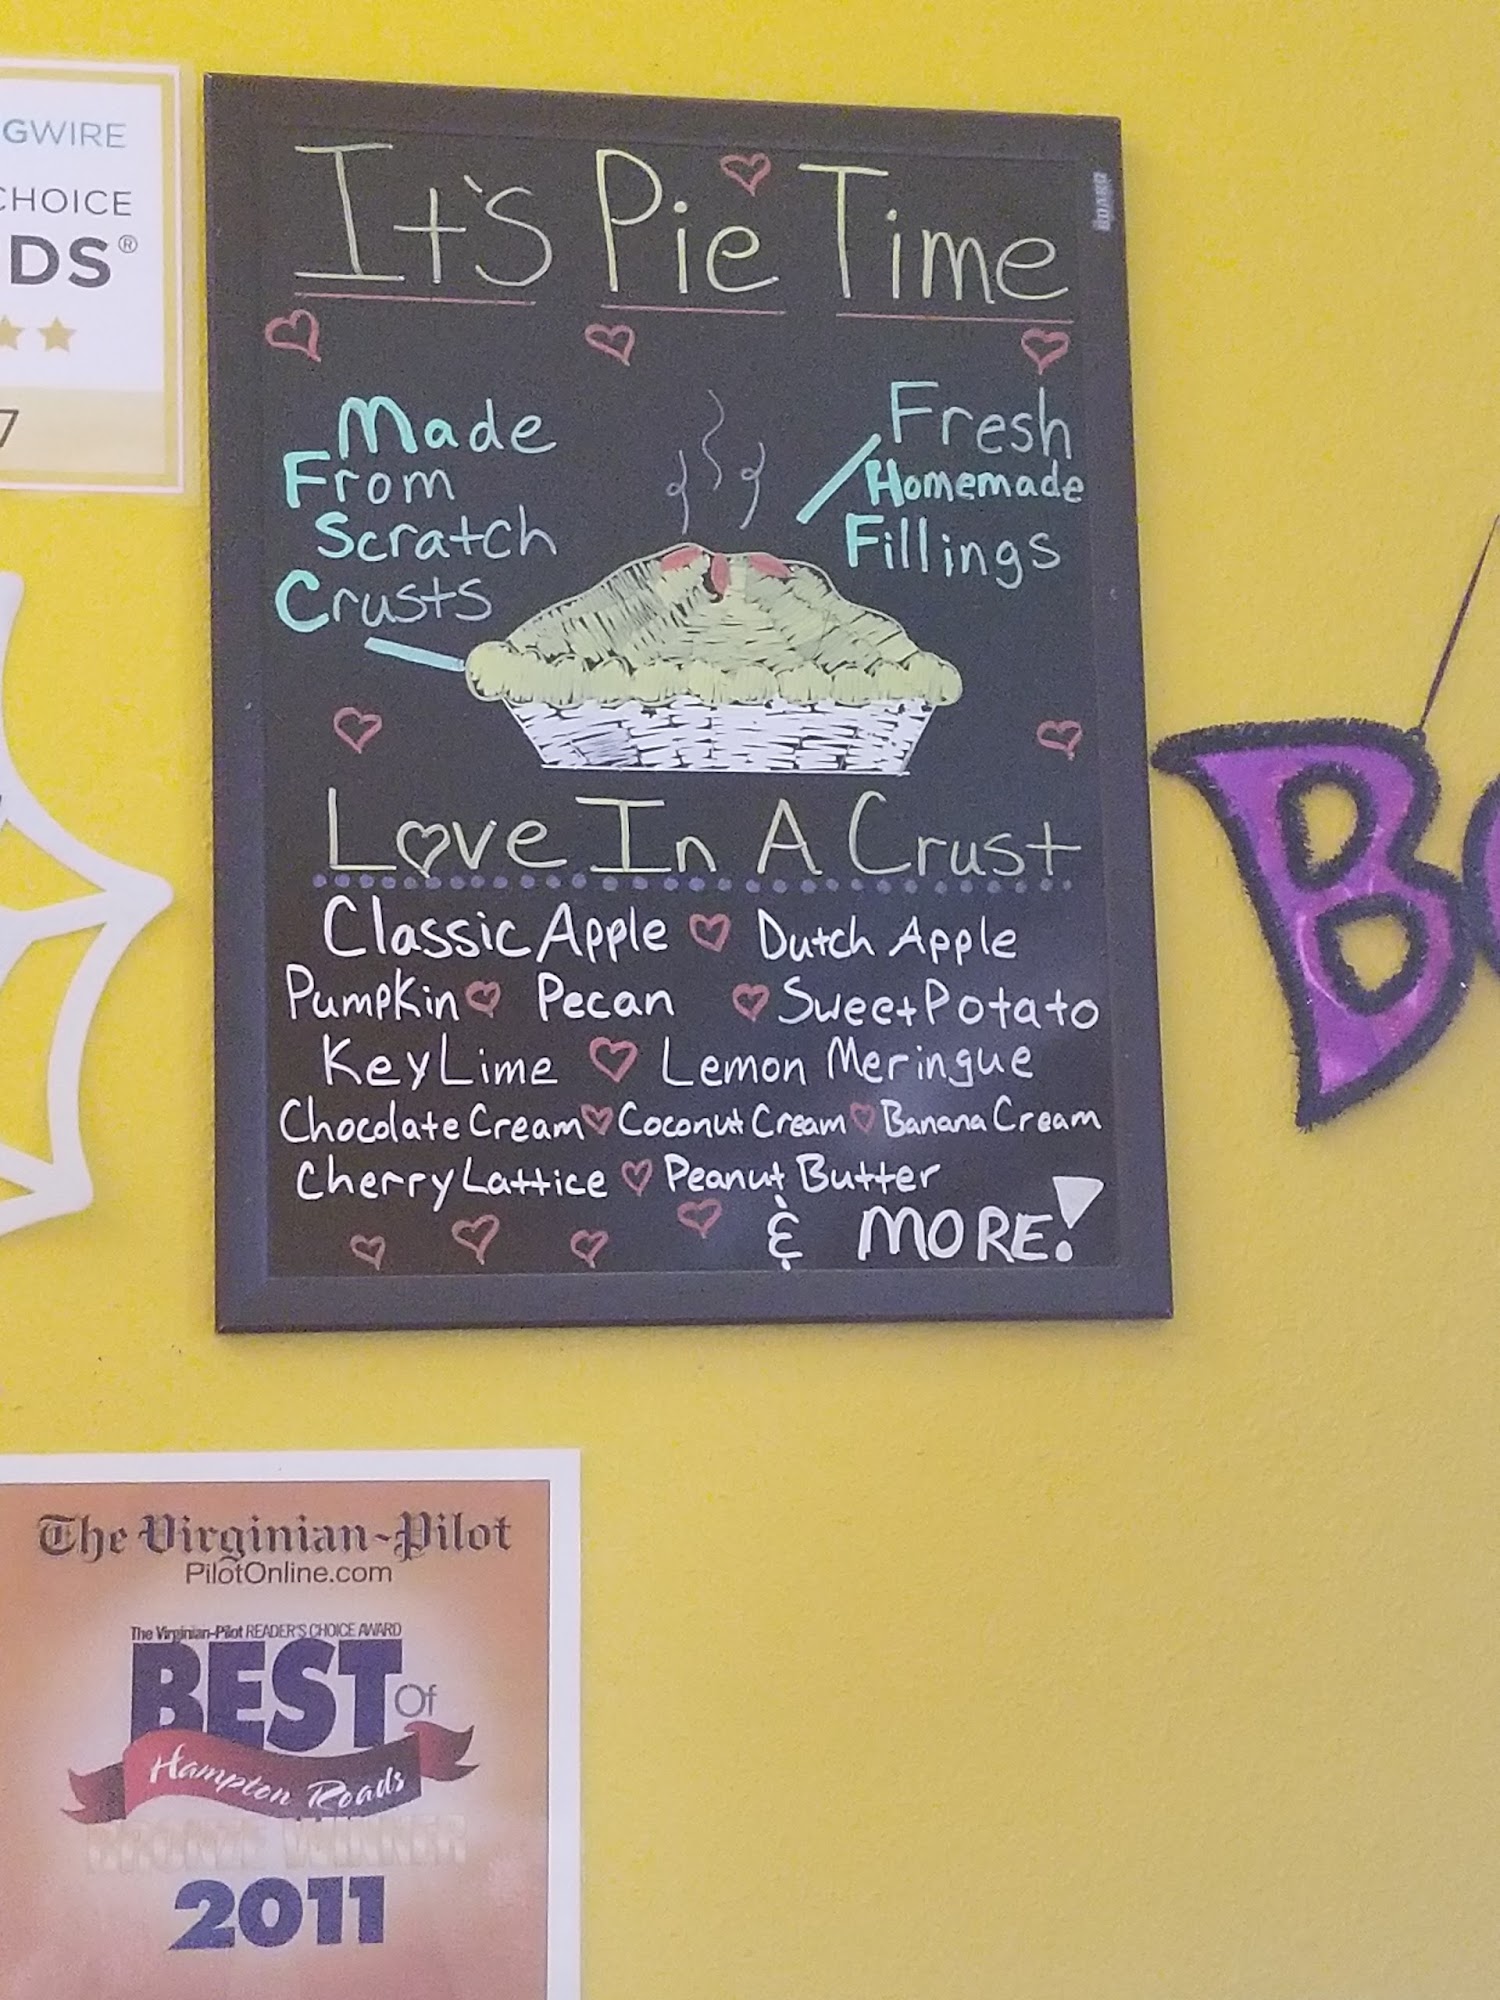 GWIRE
CHOICE
DS®
7
It's Pie Time
Made
From
Scratch
Crusts
Fresh
Homemade
Fillings
Love In A Crust
Classic Apple Dutch Apple
Pumpkin Pecan Sweet Potato
Key Lime Lemon Meringue
Chocolate Cream Coconut Cream Banana Cream
Cherry Lattice Peanut Butter
& MORE!
B
The Virginian-Pilot
PilotOnline.com
The Virginian-Pilot READER'S CHOICE AWARD
BEST Of
Hampton Roads
BRONZE WINNER
2011